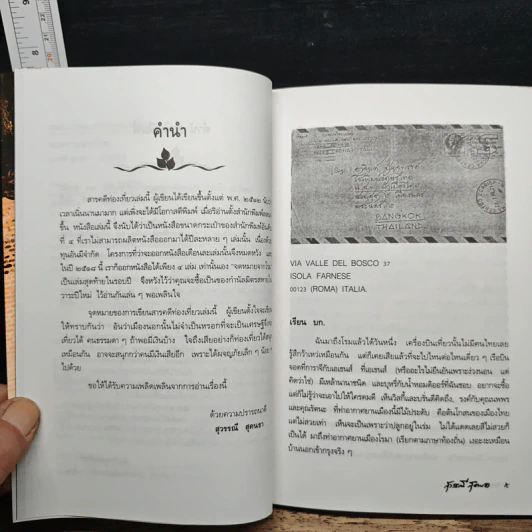 คำนำ
สารคดีท่องเที่ยวเล่มนี้ ผู้เขียนได้เขียนตั้งแต่ พ.ศ. ๒๕๑๒
เวลาเนิ่นนานมามาก แต่เพิ่งจะได้มีโอกาสตีพิมพ์ เมื่อริอ่านตั้งสำนักพิมพ์
ขึ้น หนังสือเล่มนี้ จึงนับได้ว่าเป็นหนังสือขนาดกระเป๋าของสำนักพิมพ์
ที่ ๔ ที่เราไม่สามารถผลิตหนังสือออกมาได้ปีละหลาย ๆ เล่มนั้น
ทุนอันมีจำกัด โครงการที่ว่าจะออกหนังสือเดือนละเล่มนั้นจึงหมดหวัง
ในปี ๒๕๑๘ นี้ เราก็ออกหนังสือได้เพียง ๔ เล่ม เท่านั้นเอง
เป็นเล่มสุดท้ายในรอบปี จึงหวังไว้ว่าคุณจะซื้อเป็นของกำนัลมิตรสหาย
วาระปีใหม่ ไว้อ่านกันเล่น ๆ พอเพลินใจ
จุดหมายของการเขียนสารคดีท่องเที่ยวเล่มนี้ ผู้เขียนตั้งใจจะ
ให้ทราบกันว่า อันว่าเมืองนอกนั้นไม่จำเป็นหรอกที่จะเป็นเศรษฐีจึง
เที่ยวได้ คนธรรมดา ๆ ถ้าพอมีเงินบ้าง ใจถึงเสียอย่างก็ท่องเที่ยวได้
เหมือนกัน อาจจะสนุกกว่าคนมีเงินเสียอีก เพราะได้ผจญภัยเล็ก ๆ น้อย
ไปด้วย
ขอให้ได้รับความเพลิดเพลินจากการอ่านเรื่องนี้
ด้วยความปรารถนาดี
สุวรรณี สุคนธา
BANGKOK
THAILAND
VIA VALLE DEL BOSCO 37
ISOLA FARNESE
00123 (ROMA) ITALIA.
เรียน บก.
ฉันมาถึงโรมแล้วได้วันหนึ่ง เครื่องบินเที่ยวนั้นไม่มีคนไทยเลย
รู้สึกว้าเหว่เหมือนกัน แต่ก็เคยเสียแล้วที่จะไปไหนต่อไหนเดี่ยว ๆ เรือบิน
จอดที่การาจีกับเอเธนส์ ที่เอเธนส์ (หรืออะไรไม่ยืนยันเพราะง่วงนอน แต่
คิดว่าใช่) มีเหล้านานาชนิด และบุหรี่กับน้ำหอมดิออร์ที่ฉันชอบ อยากจะซื้อ
แต่ก็ไม่รู้ว่าจะเอาไปให้ใครดมดี เห็นวิสกี้และบรั่นดีคิดถึง, รงค์กับคุณนพพร
และคุณรัตนะ ที่ท่าอากาศยานเมืองนี้มีไม้ประดับ คือต้นโกสนของเมืองไทย
แต่ไม่สวยเท่า เห็นจะเป็นเพราะว่าปลูกอยู่ในร่ม ไม่ได้แดดเลยสีไม่สวยก็
เป็นได้ มาถึงท่าอากาศยานโรมา (เรียกตามภาษาท้องถิ่น) เงอะงะเหมือน
บ้านนอกเข้ากรุงจริง ๆ